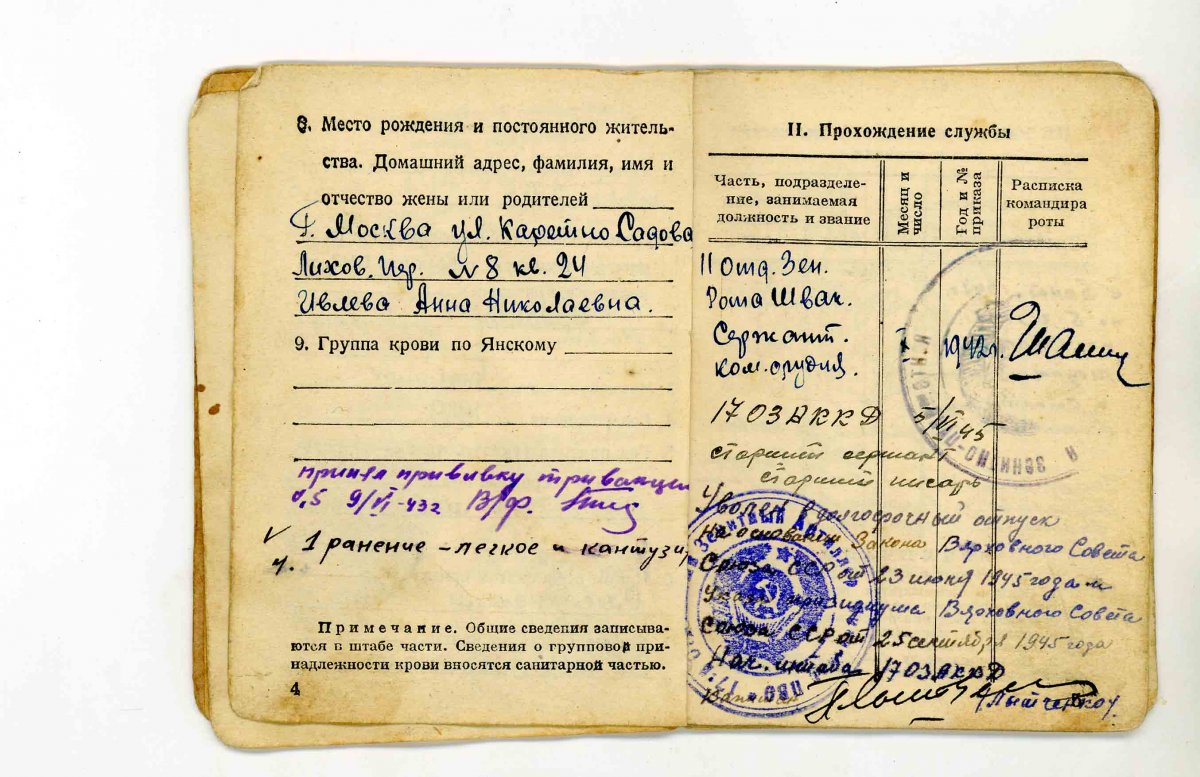 8. Место рождения и постоянного житель-
ства. Домашний адрес, фамилия, имя и
отчество жены или родителей
г. Москва ул. Каретно Садова
Лихов. пер. N 8 кв. 24
Ивлева Анна Николаевна.
9. Группа крови по Янскому
принял прививку
0,5 9/VI-43г В/ф.
1 ранение - легкое и кантузи
Примечание. Общие сведения записыва-
ются в штабе части. Сведения о групповой при-
надлежности крови вносятся санитарной частью.
4
II. Прохождение службы
Часть, подразделе-
ние, занимаемая
должность и звание
Месяц и
число
Год и №
приказа
Расписка
командира
роты
11 отд. Зен.
Рота
Сержант. 1942г.
ком. орудия.
1703АККД 5/VI 45
старший сержант
старший писарь
Уволен в долгосрочный отпуск
На основании Закона Верховного Совета
Союза ССР от 23 июня 1945 года и
Указа президиума Верховного Совета
Союза ССР от 25 сентября 1945 года
Нач. штаба 1703АККД